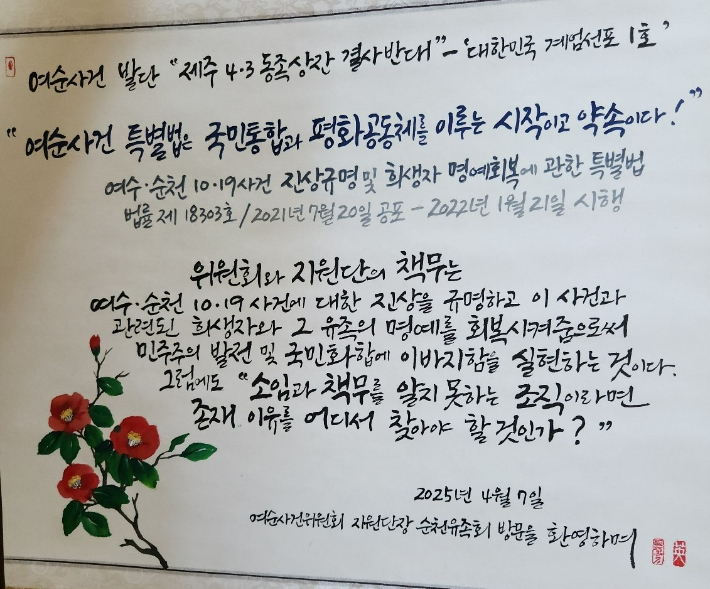 여순사건 발단 "제주 4·3 동족상잔 결사반대!" - '대한민국 계엄선포 1호'
"여순사건 특별법은 국민통합과 평화공동체를 이루는 시작이고 약속이다!"
여수·순천 10·19사건 진상규명 및 희생자 명예회복에 관한 특별법
법률 제 18303호 / 2021년 7월 20일 공포 - 2022년 1월 21일 시행
위원회와 지원단의 책무는
여수·순천 10·19 사건에 대한 진상을 규명하고 이 사건과
관련된 희생자와 그 유족의 명예를 회복시켜줌으로써
민주주의 발전 및 국민화합에 이바지함을 실현하는 것이다.
그럼에도 "소임과 책무를 알지 못하는 조직이라면
존재 이유를 어디서 찾아야 할 것인가?"
2025년 4월 7일
여순사건위원회 지원단장 순천유족회 방문을 환영하며